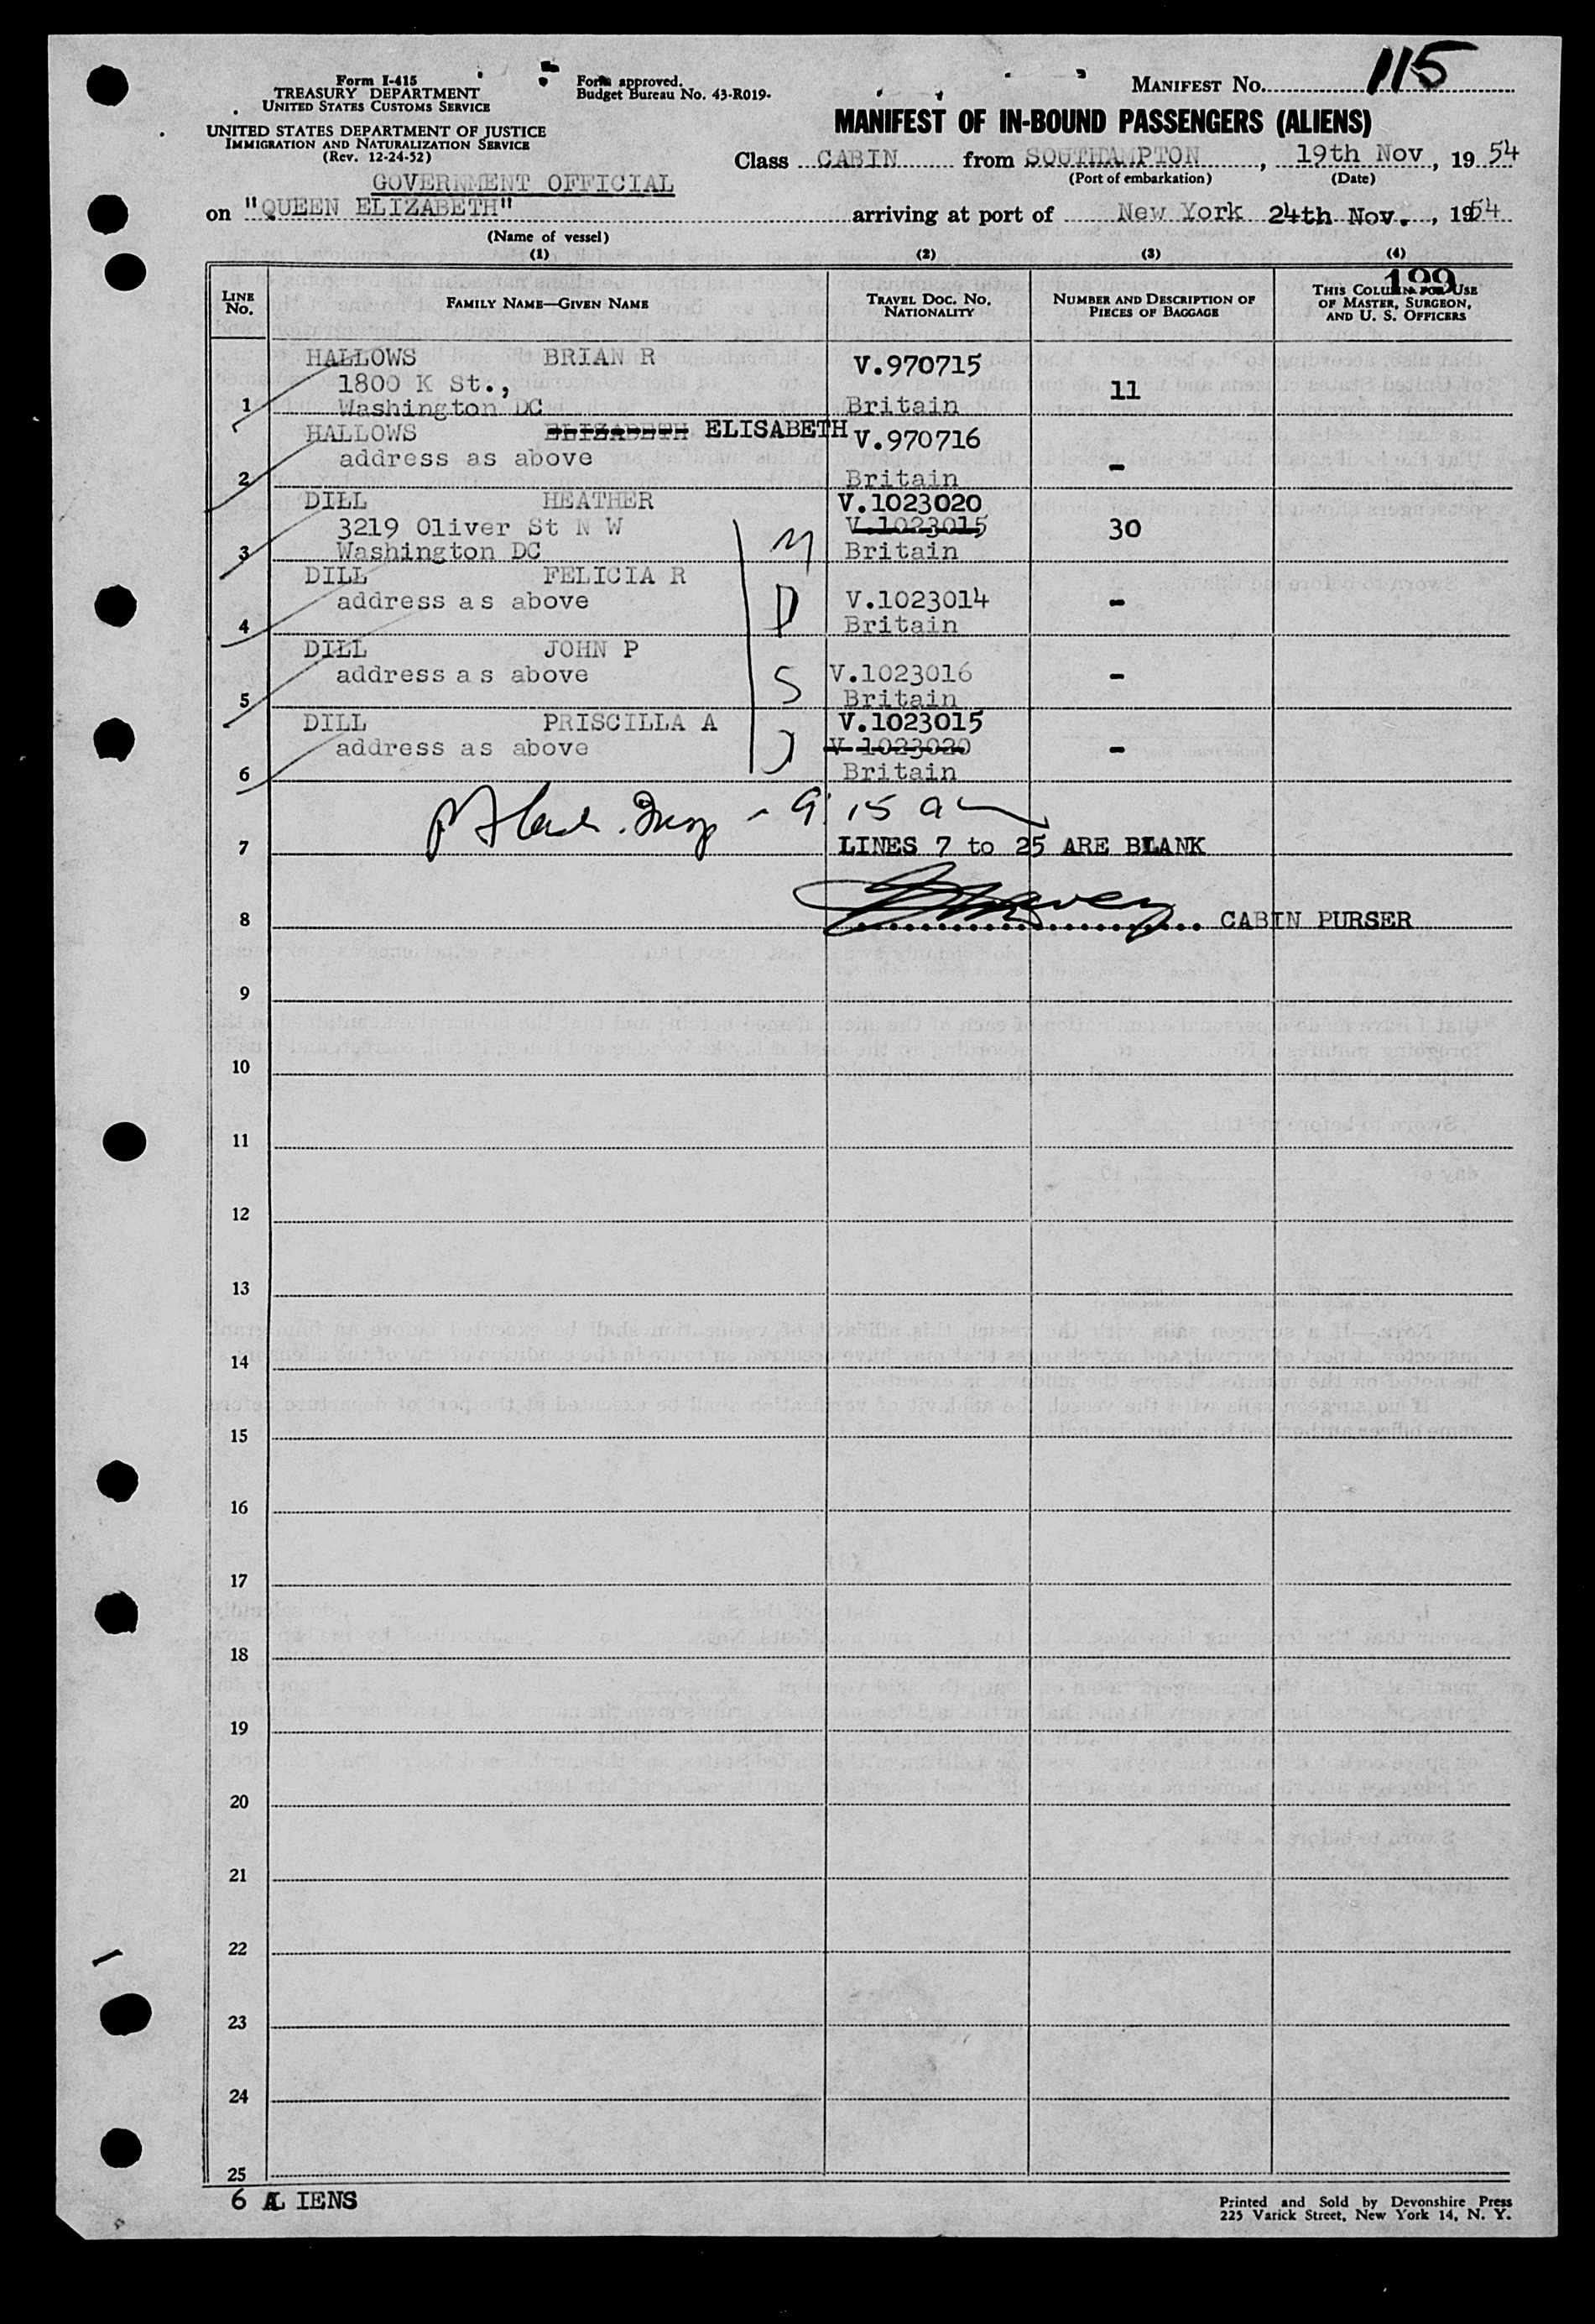 Form I-415
TREASURY DEPARTMENT
UNITED STATES CUSTOMS SERVICE
UNITED STATES DEPARTMENT OF JUSTICE
IMMIGRATION AND NATURALIZATION SERVICE
(Rev. 12-24-52)
Form approved.
Budget Bureau No. 43-R019.
MANIFEST NO. 115
MANIFEST OF IN-BOUND PASSENGERS (ALIENS)
Class CABIN from SOUTHAMPTON, 19th Nov, 19 54
(Port of embarkation) (Date)
GOVERNMENT OFFICIAL
on "QUEEN ELIZABETH" arriving at port of New York 24th Nov., 1954
(Name of vessel)
(1) (2) (3) (4)
199
LINE NO. FAMILY NAME—GIVEN NAME TRAVEL DOC. NO. NATIONALITY NUMBER AND DESCRIPTION OF PIECES OF BAGGAGE THIS COLUMN FOR USE OF MASTER, SURGEON, AND U. S. OFFICERS
HALLOWS BRIAN R V.970715
1800 K St., 11
1 Washington DC Britain
HALLOWS ELIZABETH ELISABETH V.970716
address as above -
2 Britain
DILL HEATHER V.1023020
3219 Oliver St N W V.1023015 30
3 Washington DC M Britain
DILL FELICIA R
address as above D V.1023014 -
4 Britain
DILL JOHN P
address as above S V.1023016 -
5 Britain
DILL PRISCILLA A V.1023015
address as above V.1023020 -
6 Britain
9:15 a
7 LINES 7 to 25 ARE BLANK
8 CABIN PURSER
9
10
11
12
13
14
15
16
17
18
19
20
21
22
23
24
25
6 ALIENS
Printed and Sold by Devonshire Press
225 Varick Street, New York 14, N. Y.